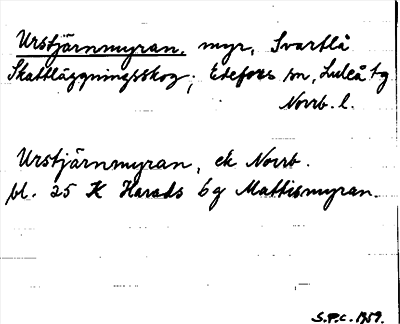 Urstjärnmyran, myr, Svartlå
Skattläggningsskog, Edefors sn, Luleå tg
Norrb. l.
Urstjärnmyran, ek Norrb.
bl. 25 K Harads 6g Mattismyran.
S.P.C. 1959.